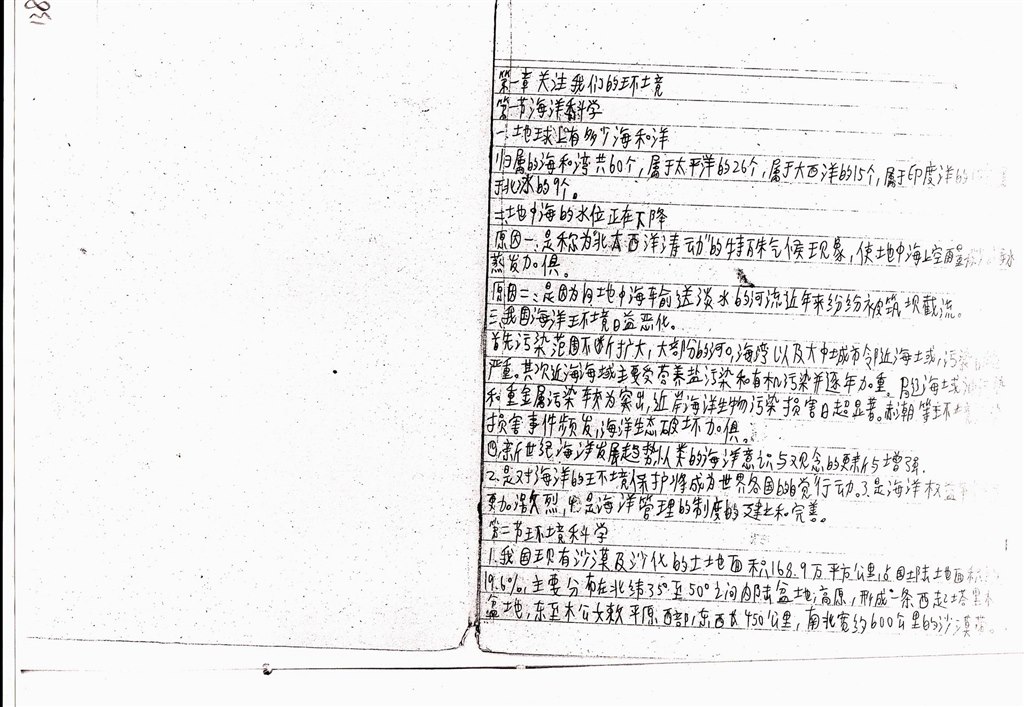 138
第一章关注我们的环境
第一节海洋科学
一.地球上有多少海和洋
归属的海和湾共60个,属于太平洋的26个,属于大西洋的15个,属于印度洋的
于北冰的9个。
二.地中海的水位正在下降
原因一:是称为"北大西洋涛动"的特殊气候现象,使地中海上空雨量
蒸发加俱。
原因二:是因为向地中海输送淡水的河流近年来纷纷被筑坝截流。
三.我国海洋环境日益恶化。
首先污染范围不断扩大,大部分的河口,海湾以及大中城市邻近海域,污染
严重。其次近海海域主要受营养盐污染和有机污染并逐年加重。局部海域
和重金属污染较为突出,近岸海洋生物污染损害日趋显著。赤潮等环境
损害事件频发,海洋生态破坏加俱。
四.新世纪海洋发展趋势:人类的海洋意识与观念的更新与增强.
2.是对海洋的环境保护将成为世界各国的自觉行动.3.是海洋权益
更加激烈,4.是海洋管理的制度的建立和完善。
第二节环境科学
1.我国现有沙漠及沙化的土地面积168.9万平方公里,占国土陆地面积
19.6%,主要分布在北纬35°至50°之间内陆盆地,高原,形成一条西起塔里木
盆地,东至松嫩平原西部,东西长450公里,南北宽约600公里的沙漠带。